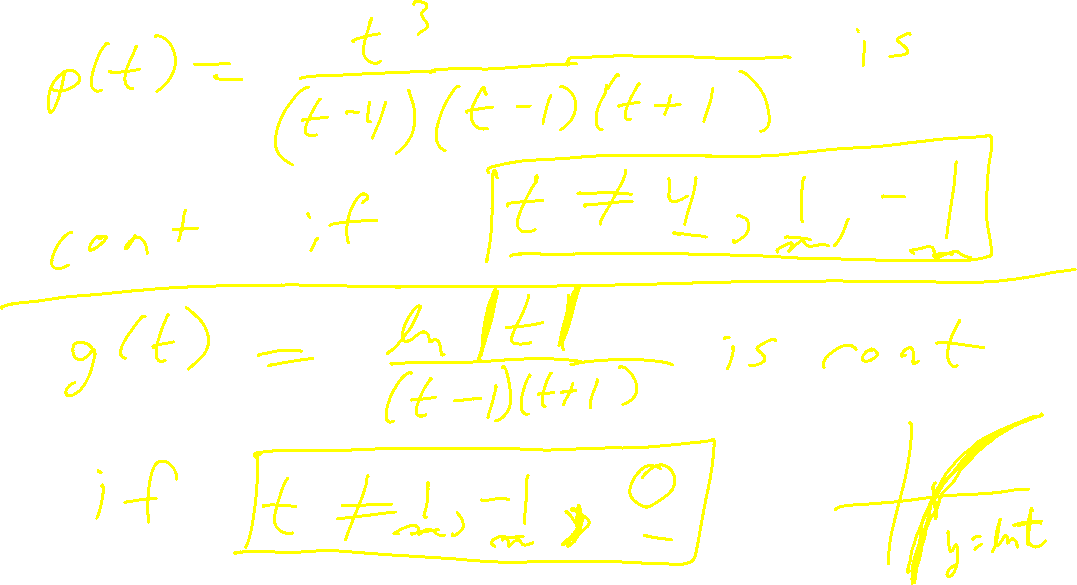 p(t) = t³ / (t-4)(t-1)(t+1) is
cont if t ≠ 4, 1, -1
g(t) = ln |t| / (t-1)(t+1) is cont
if t ≠ 1, -1, 0
y = ln t